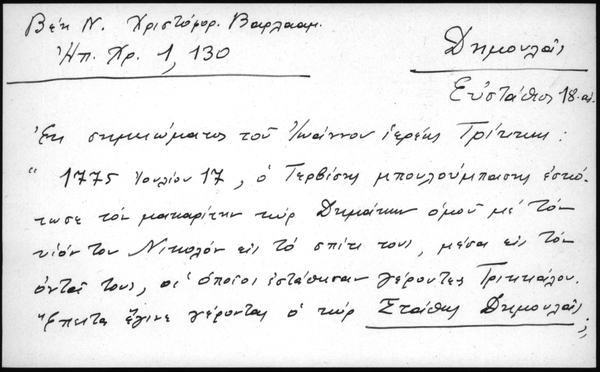 Βέη Ν. Χριστόφορ. Βαρλααμ.
Ἠπ. Χρ. 1, 130
Δημουλᾶς
Εὐστάθιος 18. αἰ.
Ἐκ σημειώματος τοῦ Ἰωάννου ἱερέως Τρίκκης :
" 1775 Ἰουλίου 17, ὁ Τερβίσης μπουλούμπασης ἐσκό-
τωσε τόν μακαρίτην κύρ Δημάκην ὁμοῦ μέ τόν
υἱόν του Νικολόν εἰς τό σπίτι τους, μέσα εἰς τόν
ὀντᾶ τους, οἱ ὁποῖοι ἐστάθησαν γέροντες Τρικκάλου.
Ἔπειτα ἔγινε γέροντας ὁ κύρ Στάθης Δημουλᾶς ;